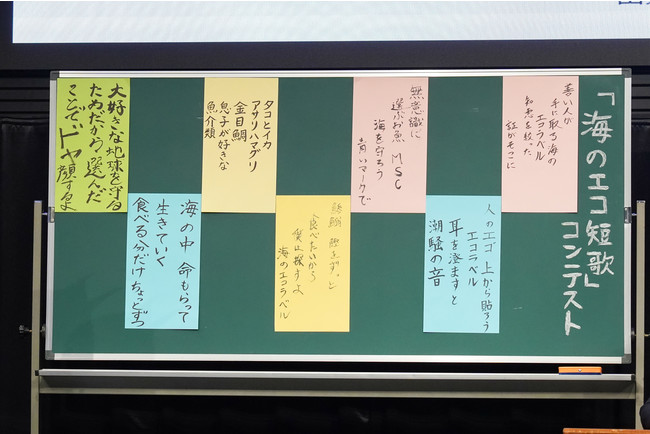 「海のエコ短歌」
コンテスト
善い人が
手に取る海の
エコラベル
知恵を絞った
がそこに
人のエゴ 上から貼ろう
エコラベル
耳を澄ますと
潮騒の音
無意識に
選ぶお魚 MSC
海を守ろう
青いマークで
ずっと
食べたいから
僕は探すよ
海のエコラベル
タコとイカ
アサリハマグリ
金目鯛
息子が好きな
魚介類
海の中 命もらって
生きていく
食べる分だけちょっとずつ
大好きな地球を守る
ためだから 選んだ
ここで、ドヤ顔するよ